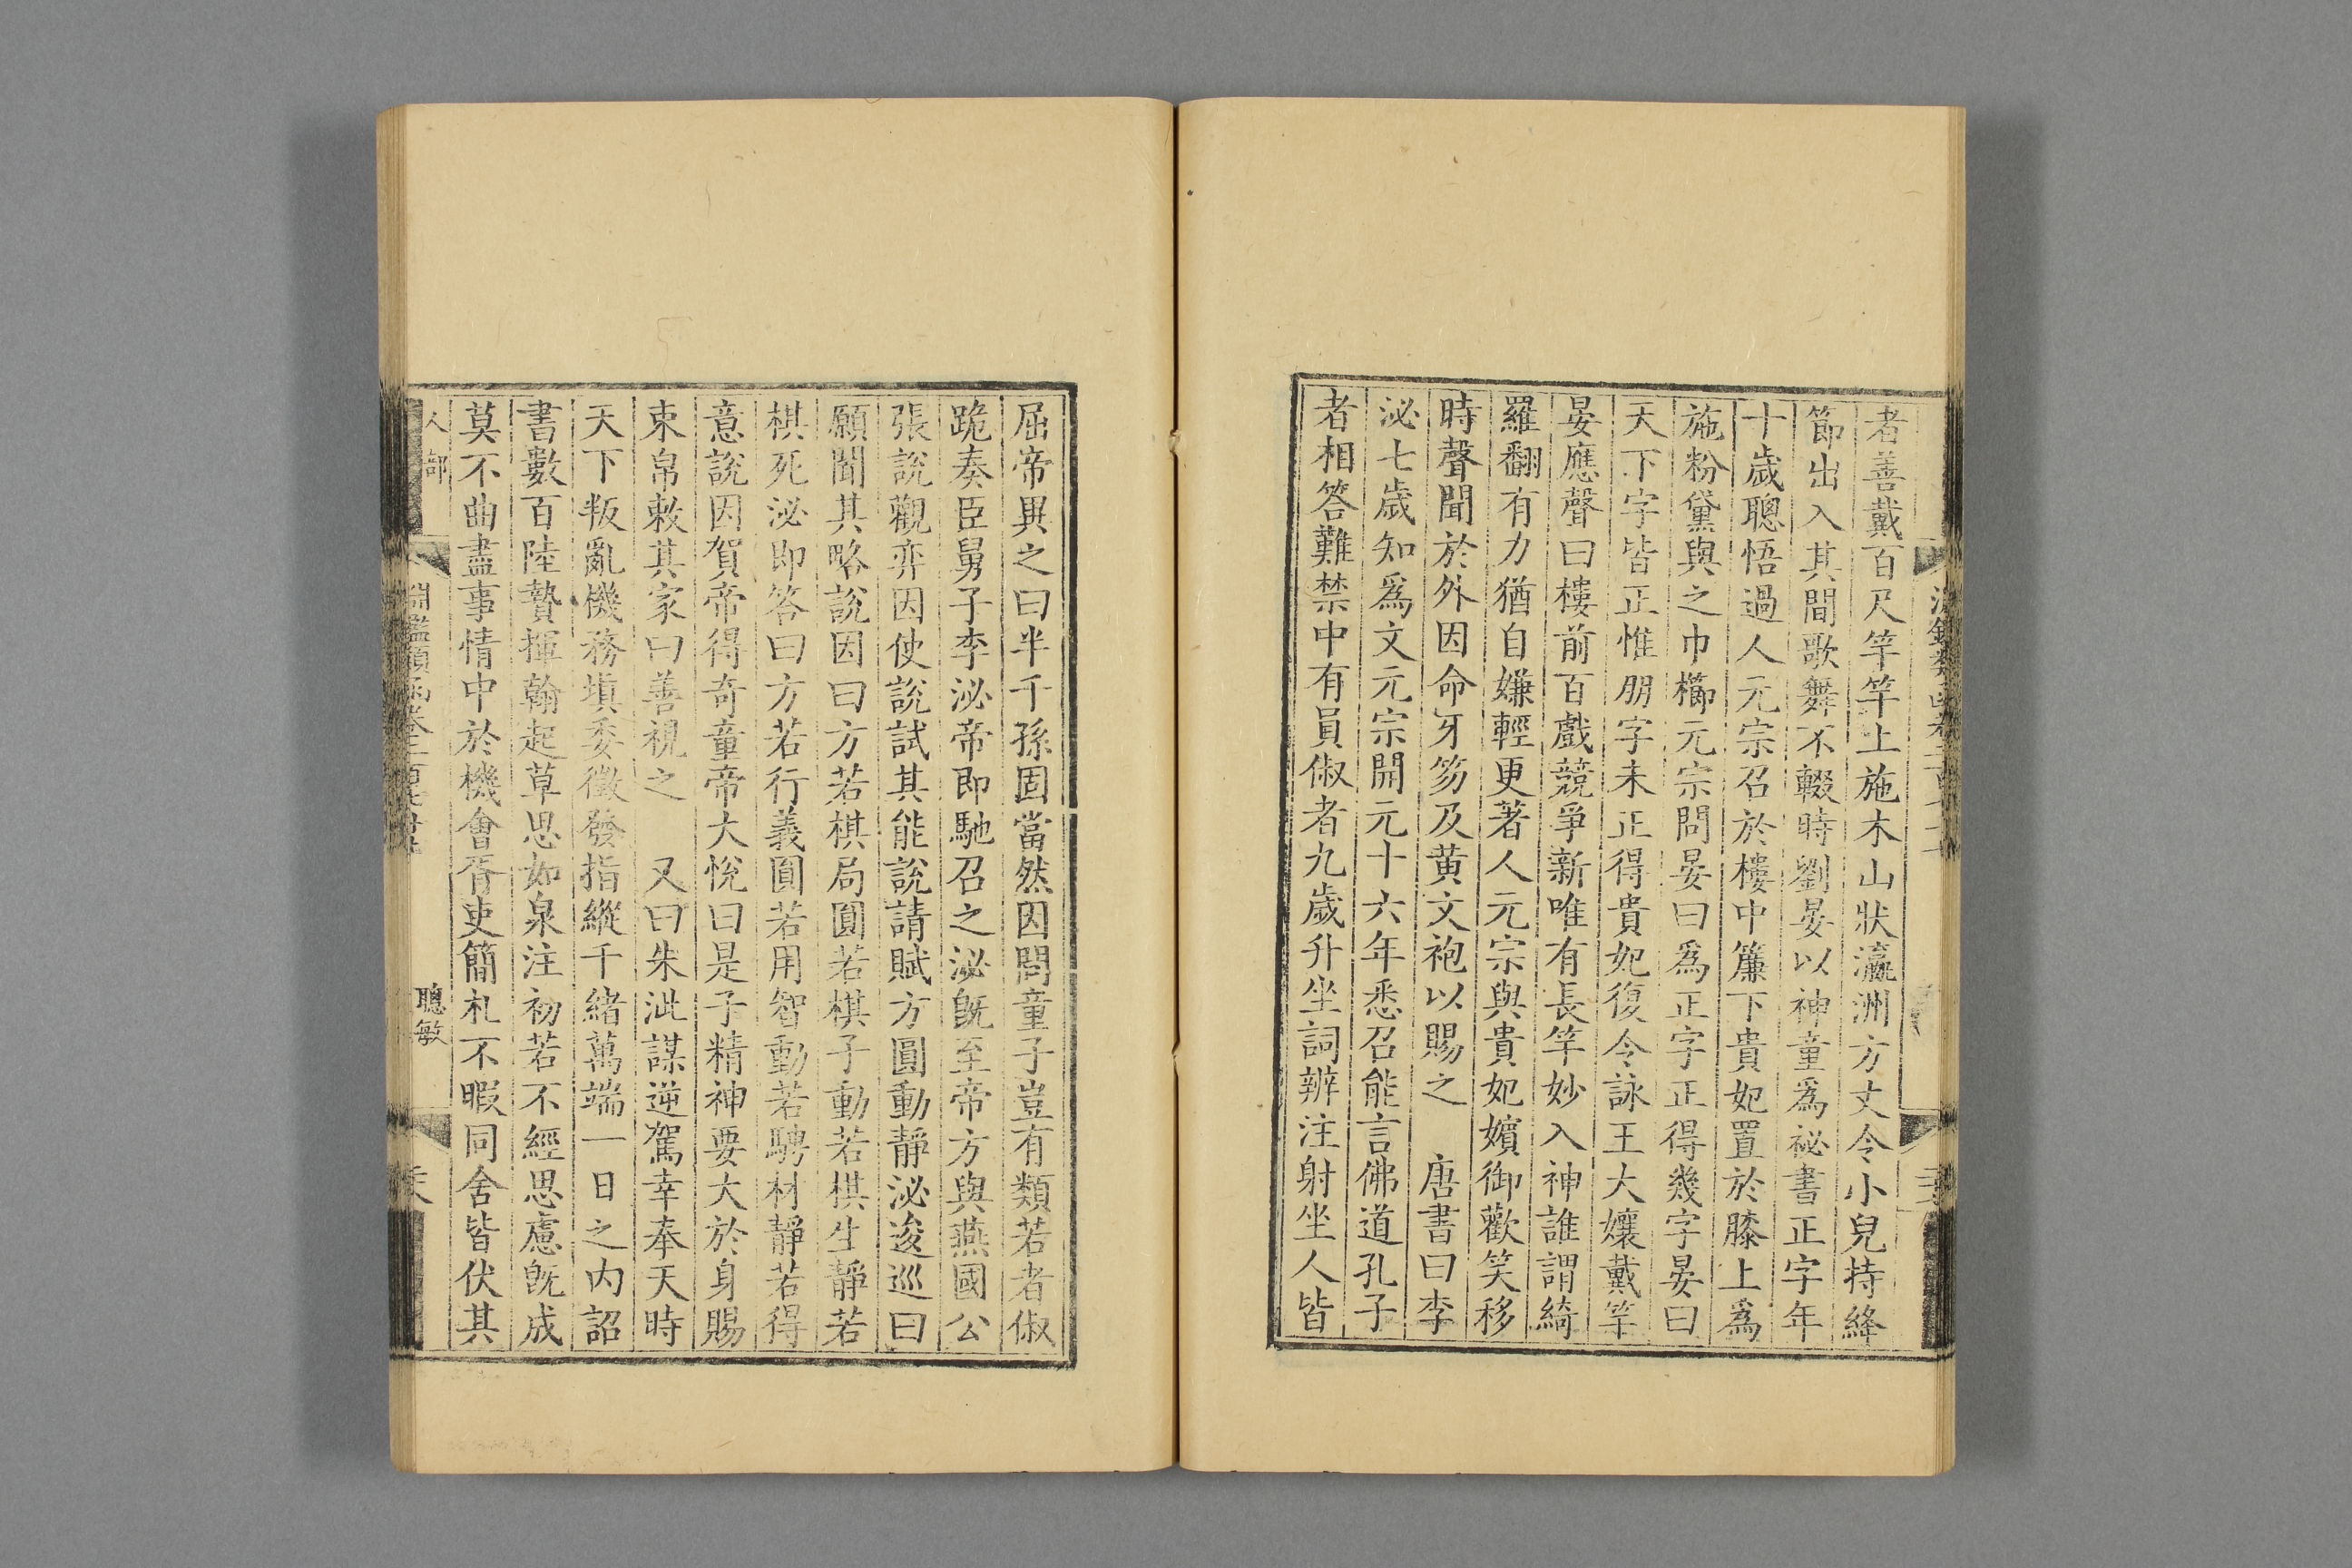 者善戴百尺竿竿上施木山狀瀛洲方丈令小兒持絳
節出入其間歌舞不輟時劉晏以神童爲祕書正字年
十歲聰悟過人元宗召於樓中簾下貴妃置於膝上爲
施粉黛與之巾櫛元宗問晏曰爲正字正得幾字晏曰
天下字皆正惟朋字未正得貴妃復令詠王大孃戴竿
晏應聲曰樓前百戲競爭新唯有長竿妙入神誰謂綺
羅翻有力猶自嫌輕更著人元宗與貴妃嬪御歡笑移
時聲聞於外因命牙笏及黄文袍以賜之 唐書曰李
泌七歲知爲文元宗開元十六年悉召能言佛道孔子
者相答難禁中有員俶者九歲升坐詞辨注射坐人皆
屈帝異之曰半千孫固當然因問童子豈有類若者俶
跪奏臣舅子李泌帝即馳召之泌旣至帝方與燕國公
張說觀弈因使說試其能說請賦方圓動靜泌逡巡曰
願聞其略說因曰方若棋局圓若棋子動若棋生靜若
棋死泌即答曰方若行義圓若用智動若騁材靜若得
意說因賀帝得奇童帝大悅曰是子精神要大於身賜
束帛敕其家曰善視之 又曰朱泚謀逆駕幸奉天時
天下叛亂機務塡委徵發指縱千緒萬端一日之内詔
書數百陸贄揮翰起草思如泉注初若不經思慮旣成
莫不曲盡事情中於機會胥吏簡札不暇同舍皆伏其
人部
淵鑑類函卷二百
聰敏